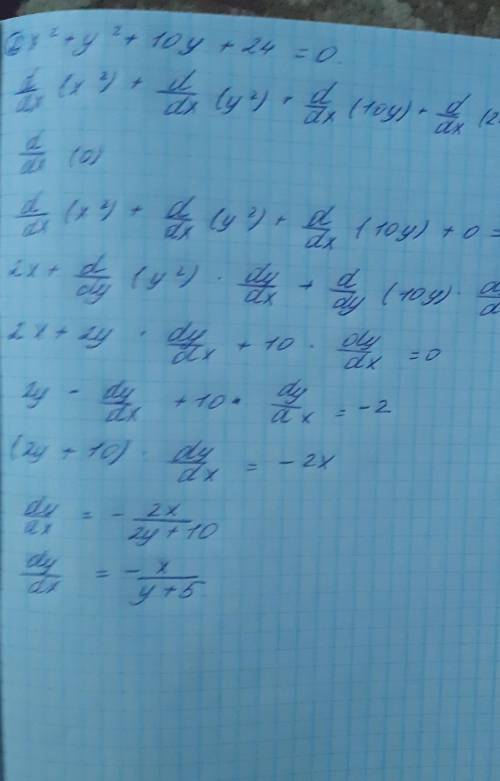 x² + y² + 10y + 24 = 0.
d/dx (x²) + d/dx (y²) + d/dx (10y) + d/dx (2
d/dx (0)
d/dx (x²) + d/dx (y²) + d/dx (10y) + 0 =
2x + d/dy (y²) · dy/dx + d/dy (10y) · d
2x + 2y · dy/dx + 10 · dy/dx = 0
2y - dy/dx + 10 · dy/dx = -2
(2y + 10) · dy/dx = -2x
dy/dx = - 2x/2y+10
dy/dx = - x/y+5